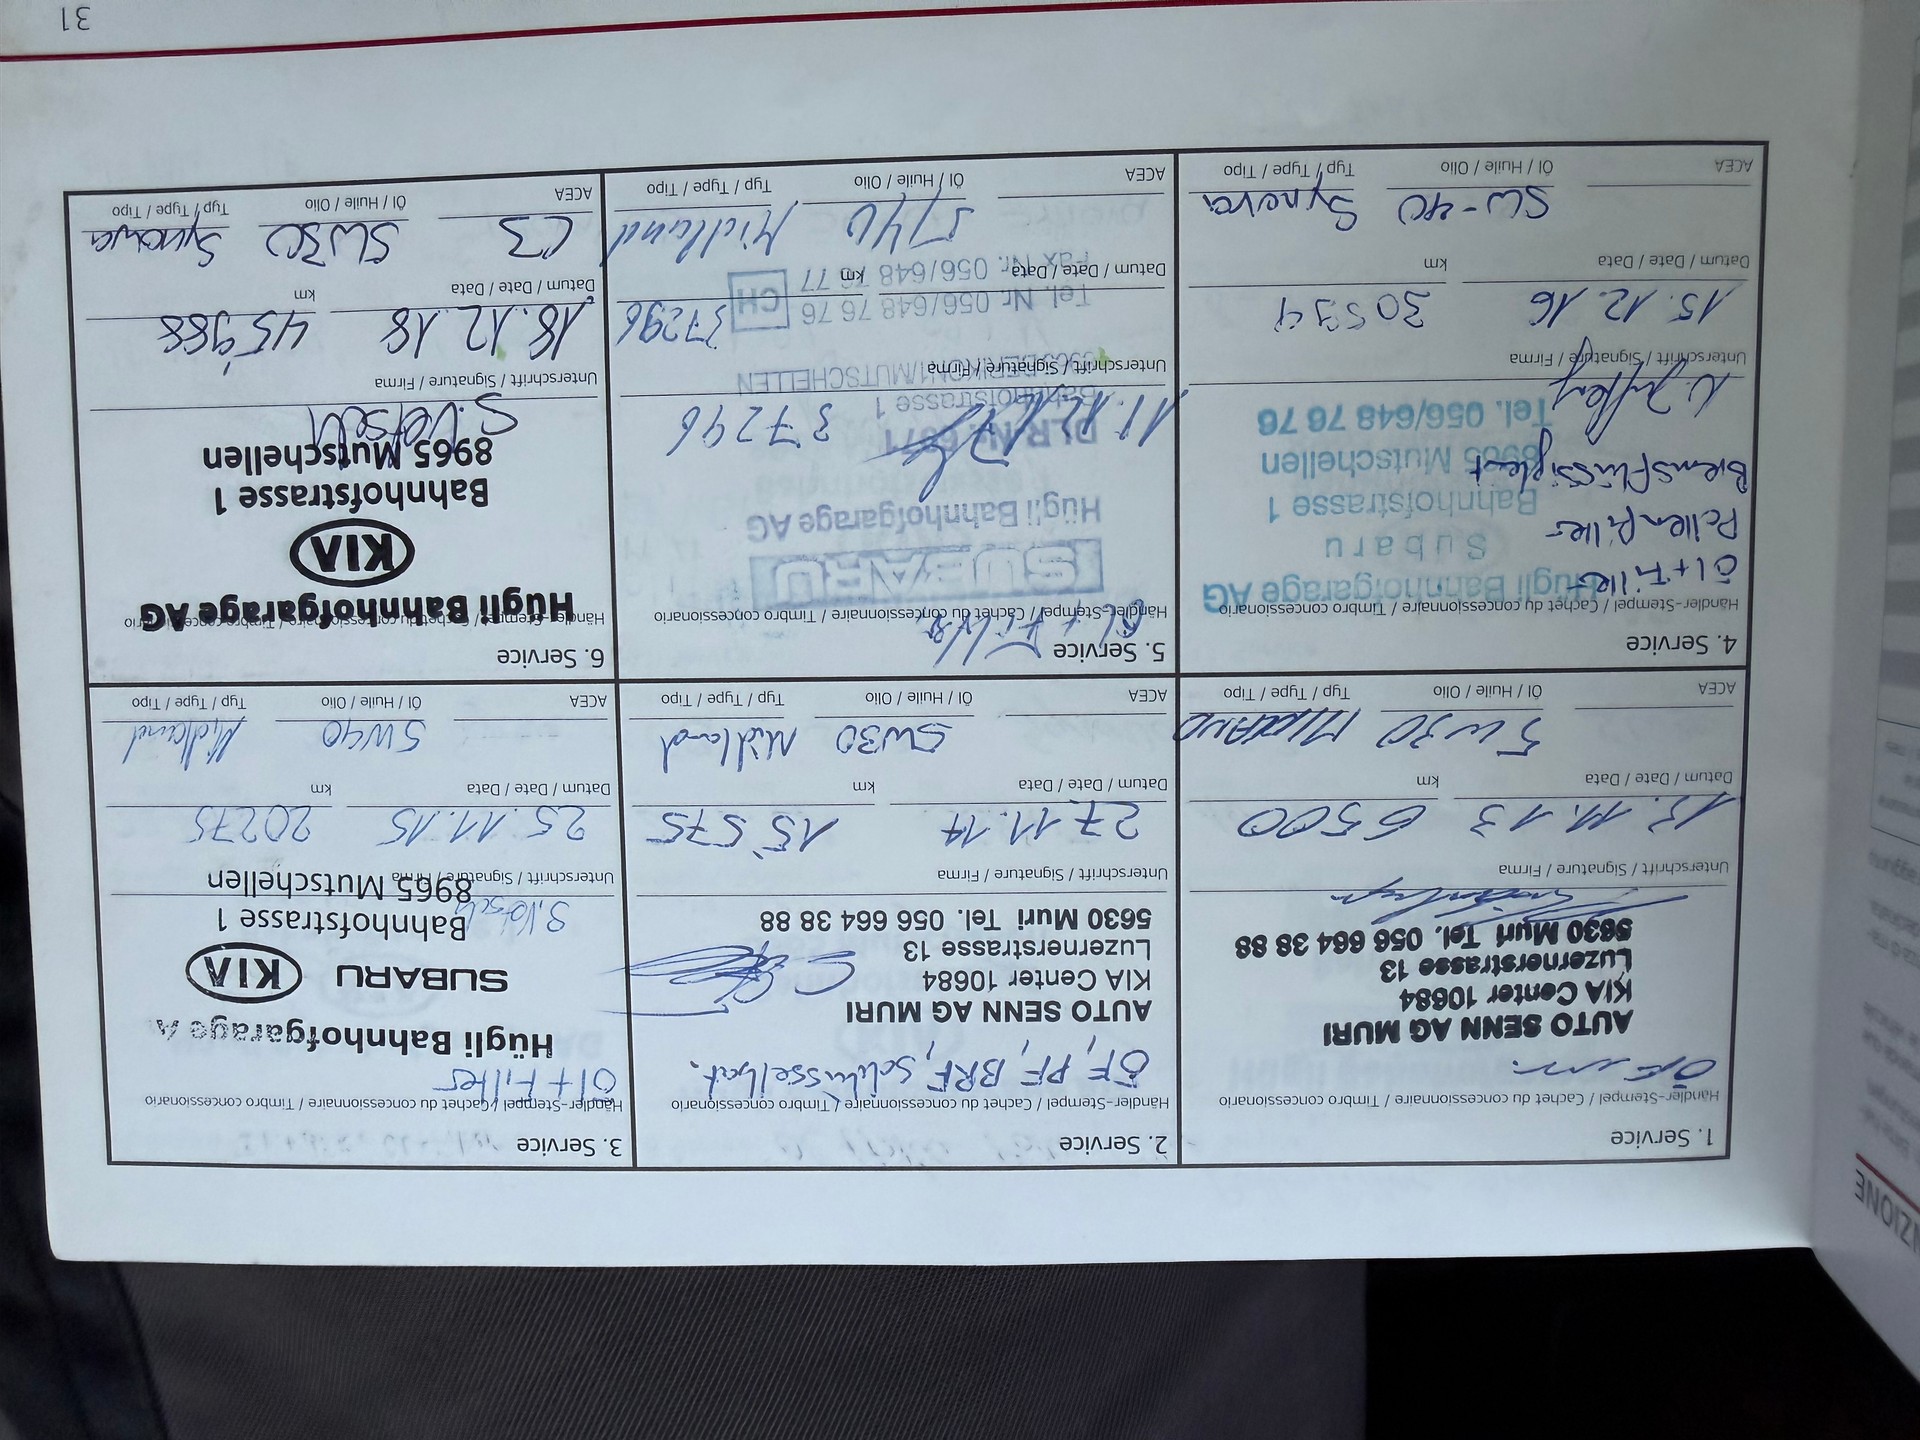 1. Service
Händler-Stempel / Cachet du concessionnaire / Timbro concessionario
AUTO SENN AG MURI
KIA Center 10684
Luzernerstrasse 13
5630 Muri Tel. 056 664 38 88
Unterschrift / Signature / Firma
13.11.13 6500
Datum / Date / Data km
5W30 MIDLAND
ACEA Öl / Huile / Olio Typ / Type / Tipo
2. Service
Händler-Stempel / Cachet du concessionnaire / Timbro concessionario
ÖF, PF, BRF, Schlüsselbat.
AUTO SENN AG MURI
KIA Center 10684
Luzernerstrasse 13
5630 Muri Tel. 056 664 38 88
Unterschrift / Signature / Firma
27.11.14 15'575
Datum / Date / Data km
5W30 Midland
ACEA Öl / Huile / Olio Typ / Type / Tipo
3. Service
Händler-Stempel / Cachet du concessionnaire / Timbro concessionario
Öl + Filter
Hügli Bahnhofgarage A
SUBARU KIA
Bahnhofstrasse 1
8965 Mutschellen
Unterschrift / Signature / Firma
25.11.15 20275
Datum / Date / Data km
5W40 Midland
ACEA Öl / Huile / Olio Typ / Type / Tipo
4. Service
Händler-Stempel / Cachet du concessionnaire / Timbro concessionario
Hügli Bahnhofgarage AG
Öl + Filter
Subaru
Pollenfilter
Bahnhofstrasse 1
Bremsflüssigkeit
8965 Mutschellen
Tel. 056/648 76 76
Unterschrift / Signature / Firma
15.12.16 30594
Datum / Date / Data km
5W-40 Synova
ACEA Öl / Huile / Olio Typ / Type / Tipo
5. Service
Händler-Stempel / Cachet du concessionnaire / Timbro concessionario
Öl + Filter
SUBARU
Hügli Bahnhofgarage AG
DLR-Nr. 6671
11.12.17 37296
Bahnhofstrasse 1
8965 BERIKON 1/MUTSCHELLEN
Unterschrift / Signature / Firma
Tel. Nr. 056/648 76 76 CH
37296
Fax Nr. 056/648 76 77
Datum / Date / Data km
5/40 Midland
ACEA Öl / Huile / Olio Typ / Type / Tipo
6. Service
Händler-Stempel / Cachet du concessionnaire / Timbro concessionario
Hügli Bahnhofgarage AG
KIA
Bahnhofstrasse 1
8965 Mutschellen
Unterschrift / Signature / Firma
18.12.18 45'988
Datum / Date / Data km
C3 5W30 Synova
ACEA Öl / Huile / Olio Typ / Type / Tipo
31